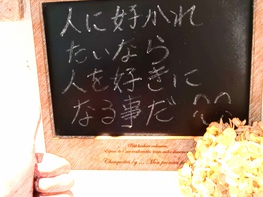 人に好かれ
たいなら
人を好きに
なる事だ